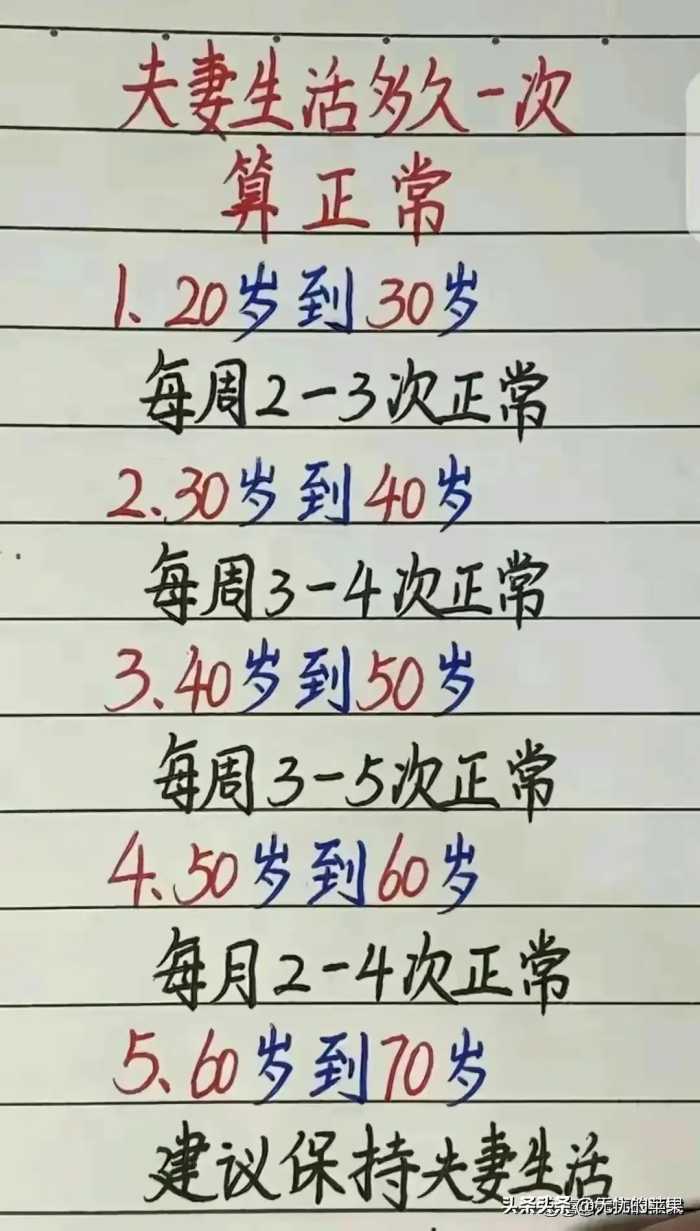 夫妻生活多久一次
算正常
1、20岁到30岁
每周2-3次正常
2、30岁到40岁
每周3-4次正常
3、40岁到50岁
每周3-5次正常
4、50岁到60岁
每月2-4次正常
5、60岁到70岁
建议保持夫妻生活
头条 @无忧的苹果